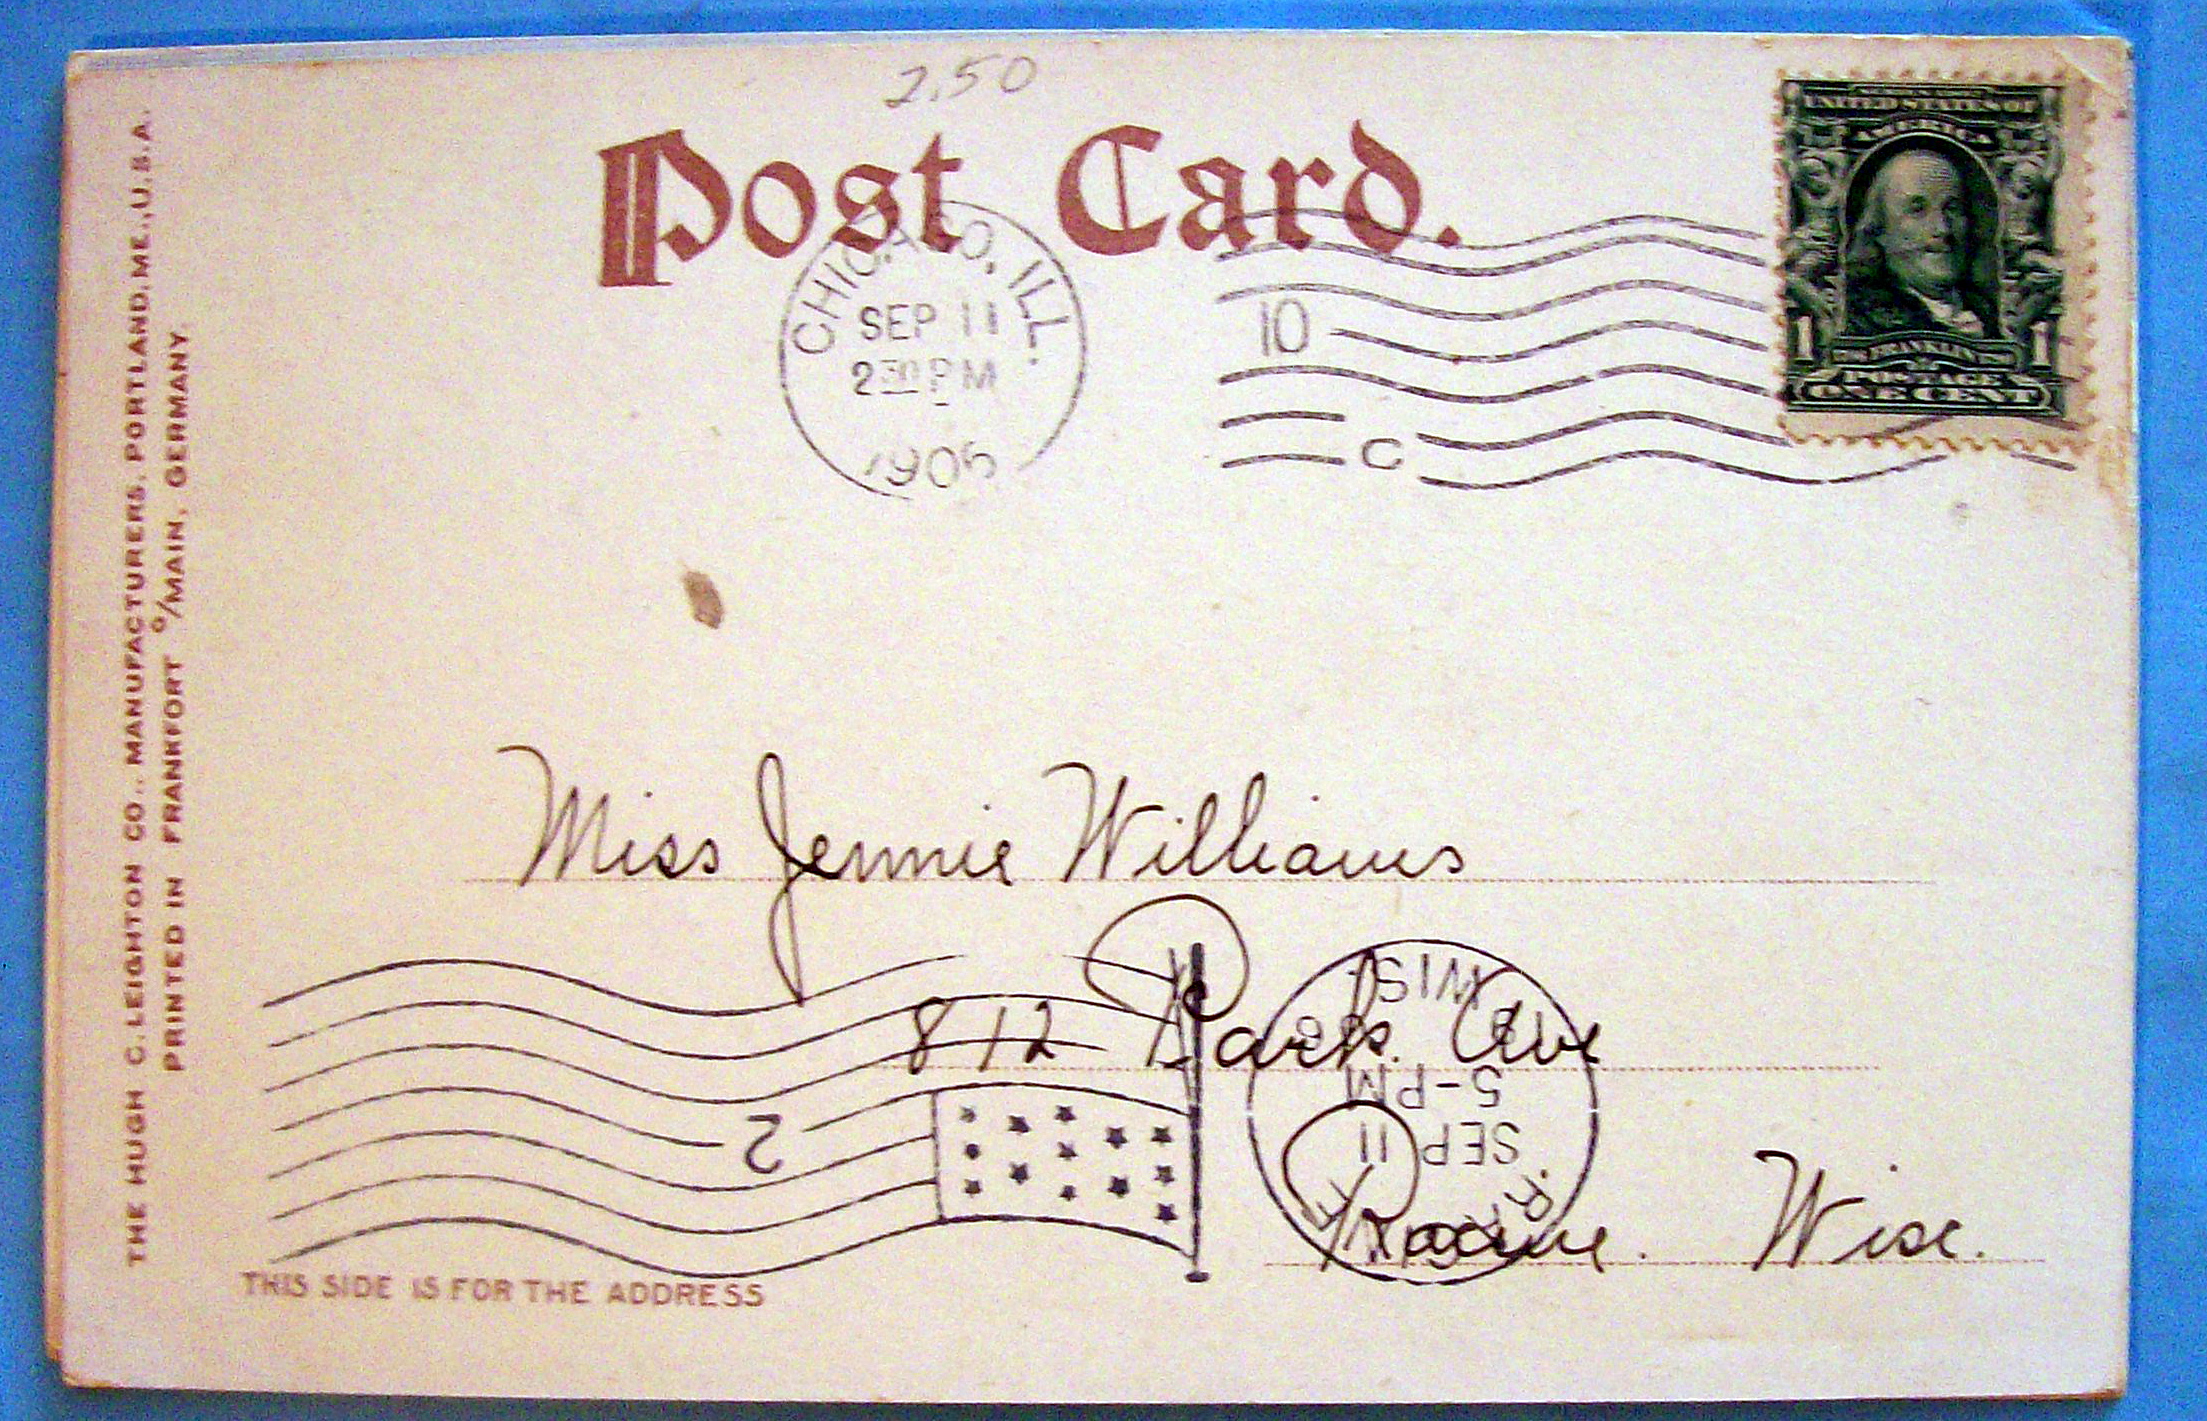 2.50
Post Card.
CHICAGO, ILL.
SEP 11
2 30 PM
1906
10
C
UNITED STATES OF
AMERICA
1 FRANKLIN 1
POSTAGE
ONE CENT
THE HUGH C. LEIGHTON CO., MANUFACTURERS, PORTLAND, ME., U.S.A.
PRINTED IN FRANKFORT O/MAIN, GERMANY.
Miss Jennie Williams
812 Park Ave
Racine. Wisc.
2
RACINE
SEP 11
5-PM
WIS.
THIS SIDE IS FOR THE ADDRESS